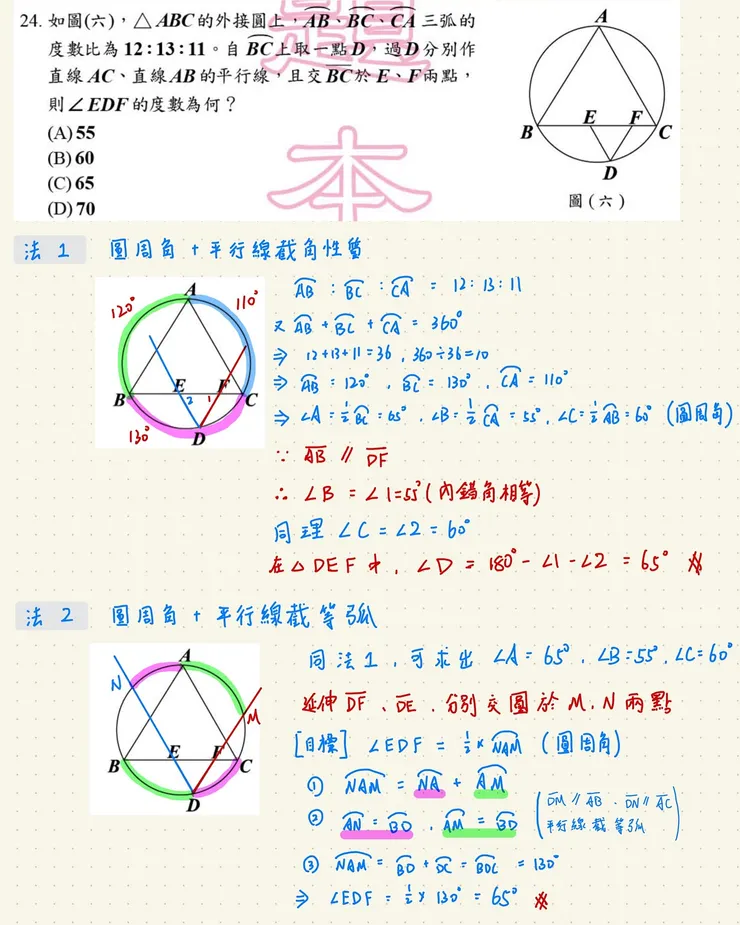 24. 如圖(六)，△ABC的外接圓上，AB、BC、CA三弧的
度數比為12：13：11。自BC上取一點D，過D分別作
直線AC、直線AB的平行線，且交BC於E、F兩點，
則∠EDF的度數為何？
(A) 55
(B) 60
(C) 65
(D) 70
A
B
E
F
C
D
圖(六)
本
法 1 圓周角 + 平行線截角性質
AB : BC : CA = 12:13:11
又 AB + BC + CA = 360°
⇒ 12+13+11=36, 360÷36=10
⇒ AB = 120°, BC = 130°, CA = 110°
⇒ ∠A=½BC=65°, ∠B=½CA=55°, ∠C=½AB=60° (圓周角)
∵ AB // DF
∴ ∠B = ∠1=55°(內錯角相等)
同理 ∠C = ∠2 = 60°
在△DEF中, ∠D = 180° - ∠1 - ∠2 = 65°
120°
A
110°
B
E
2
1
F
C
130°
D
法 2 圓周角 + 平行線截等弧
同法1, 可求出 ∠A=65°, ∠B=55°, ∠C=60°
延伸DF、DE, 分別交圓於M、N兩點
[目標] ∠EDF = ½×NAM (圓周角)
① NAM = NA + AM
② AN = BD, AM = BD
(DM // AB、DN // AC
平行線截等弧)
③ NAM = BD + DC = BDC = 130°
⇒ ∠EDF = ½×130° = 65°
A
N
M
B
E
F
C
D